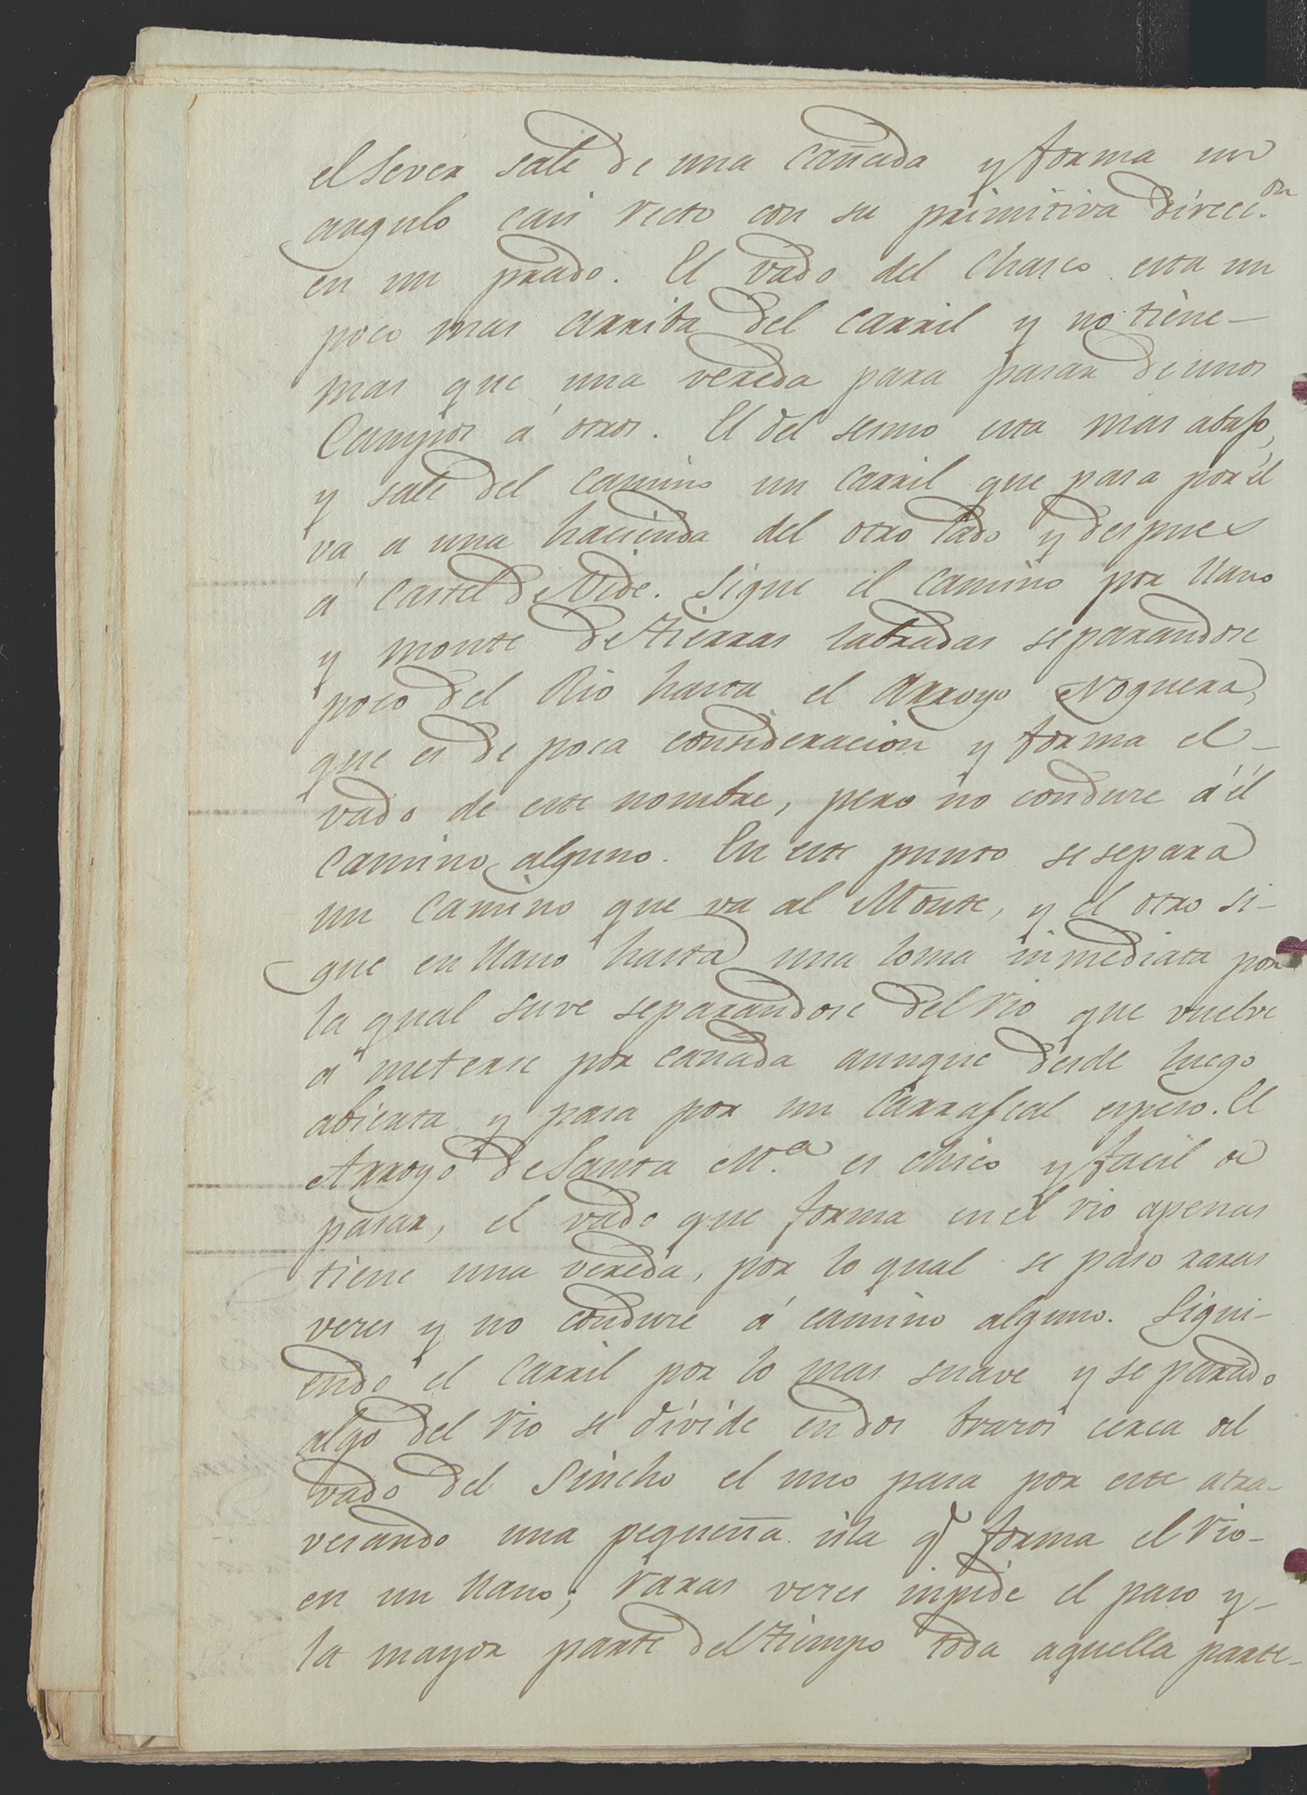 el Sever sale de una Cañada y forma un
angulo casi recto con su primitiva direcc.on
en un prado. El vado del Charco esta un
poco mas arriba del carril y no tiene
mas que una vereda para pasar de unos
Campos á otros. El del sesmo esta mas abajo,
y sale del camino un carril que pasa por él
va a una hacienda del otro lado y despues
á Castel de Vide. Sigue el camino por llano
y monte de tierras labradas separandose
poco del Rio hasta el Arroyo Noguera,
que es de poca consideracion y forma el
vado de este nombre, pero no conduce á él
camino alguno. En este punto se separa
un camino que va al Monte, y el otro si-
gue en llano hasta una loma inmediata por
la qual suve separandose del rio que vuelve
a meterse por cañada aunque desde luego
abierta y pasa por un Carrascal espeso. El
Arroyo de Santa M.a es chico y facil de
pasar, el vado que forma en el rio apenas
tiene una vereda, por lo qual se pasa raras
veces y no conduce á camino alguno. Sigui-
endo el carril por lo mas suave y separado
algo del rio se divide en dos trozos cerca del
vado del Sincho el uno pasa por este atra-
vesando una pequeña isla q.e forma el rio
en un llano; raras veces inpide el paso y
la mayor parte del tiempo toda aquella parte